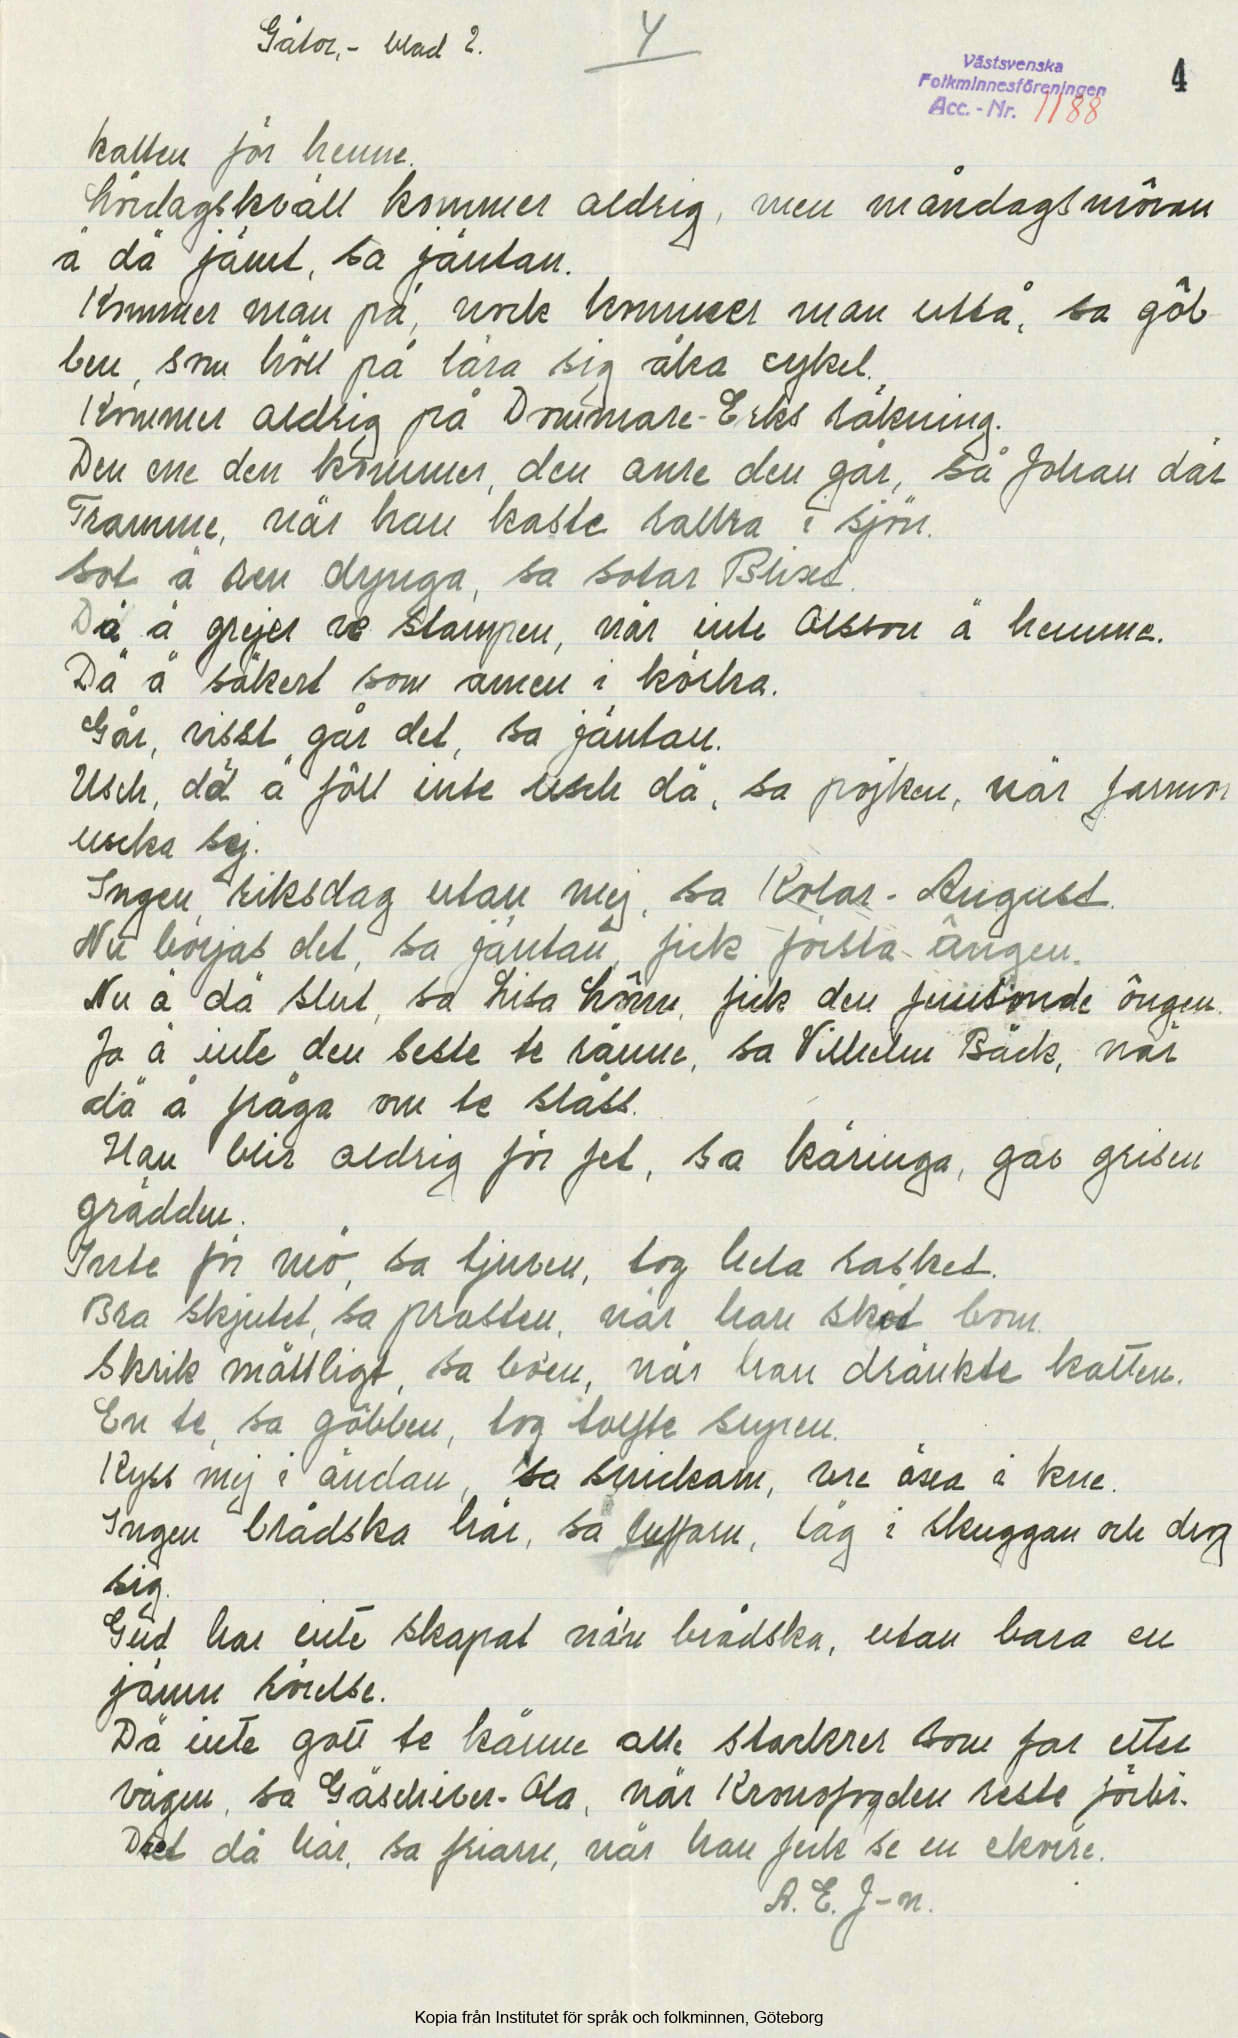 Gåtor,- blad 2.
4
Västsvenska
Folkminnesföreningen
Acc. - Nr. 1188
4
katten för henne.
Lördagskväll kommer aldrig, men måndagsmôran
ä dä jämt, sa jäntan.
Kommer man på, nock kommer man uttå, sa gôb-
ben, som höll på lära sig åka cykel.
Kommer aldrig på Dommare-Erks räkning.
Den ene den kommer, den anre den går, sa Johan där
Framme, när han kaste rattra i sjön.
Sot ä ren dynga, sa sotar Blixt.
Dä ä grejer ve stampen, när inte Olsson ä hemma.
Dä ä säkert som amen i körka.
Går, visst går det, sa jäntan.
Usch, dä ä föll inte usch dä, sa pojken, när farmor
uscka sej.
Ingen riksdag utan mej, sa Kolar-August.
Nu börjas det, sa jäntan, fick första ângen.
Nu ä dä slut, sa Lisa Lônn, fick den femtonde ôngen.
Ja ä inte den seste te ränne, sa Vilhelm Bäck, när
dä ä fråga om te slåss.
Han blir aldrig för fet, sa käringa, gav grisen
grädden.
Inte för mö, sa tjuven, tog hela rasket.
Bra skjutet, sa prosten, när han sköt bom.
Skrik måttligt, sa böen, när han dränkte katten.
En te, sa göbben, tog tolfte supen.
Kyss mej i ändan, sa snickarn, vre åsea i kne.
Ingen brådska här, sa luffarn, låg i skuggan och drog
sig.
Gud har inte skapat nå'n brådska, utan bara en
jämn rörelse.
Dä inte gott te känne alle starkrer som far etter
vägen, sa Gäschiver-Ola, när Kronofogden reste förbi.
Det då här, sa friarn, när han feck se en ekorre.
A. E. J-n.
Kopia från Institutet för språk och folkminnen, Göteborg